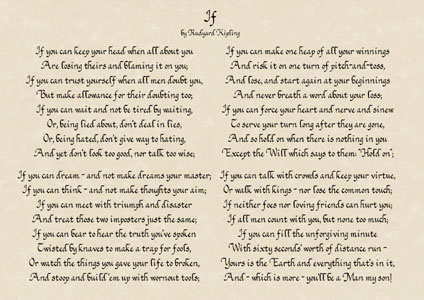 If
by Rudyard Kipling
If you can keep your head when all about you
Are losing theirs and blaming it on you;
If you can trust yourself when all men doubt you,
But make allowance for their doubting too;
If you can wait and not be tired by waiting,
Or, being lied about, don't deal in lies,
Or, being hated, don't give way to hating,
And yet don't look too good, nor talk too wise;
If you can dream - and not make dreams your master;
If you can think - and not make thoughts your aim;
If you can meet with triumph and disaster
And treat those two imposters just the same;
If you can bear to hear the truth you've spoken
Twisted by knaves to make a trap for fools,
Or watch the things you gave your life to broken,
And stoop and build 'em up with wornout tools;
If you can make one heap of all your winnings
And risk it on one turn of pitch-and-toss,
And lose, and start again at your beginnings
And never breath a word about your loss;
If you can force your heart and nerve and sinew
To serve your turn long after they are gone,
And so hold on when there is nothing in you
Except the Will which says to them: "Hold on";
If you can talk with crowds and keep your virtue,
Or walk with kings - nor lose the common touch;
If neither foes nor loving friends can hurt you;
If all men count with you, but none too much;
If you can fill the unforgiving minute
With sixty seconds' worth of distance run -
Yours is the Earth and everything that's in it,
And - which is more - you'll be a Man my son!